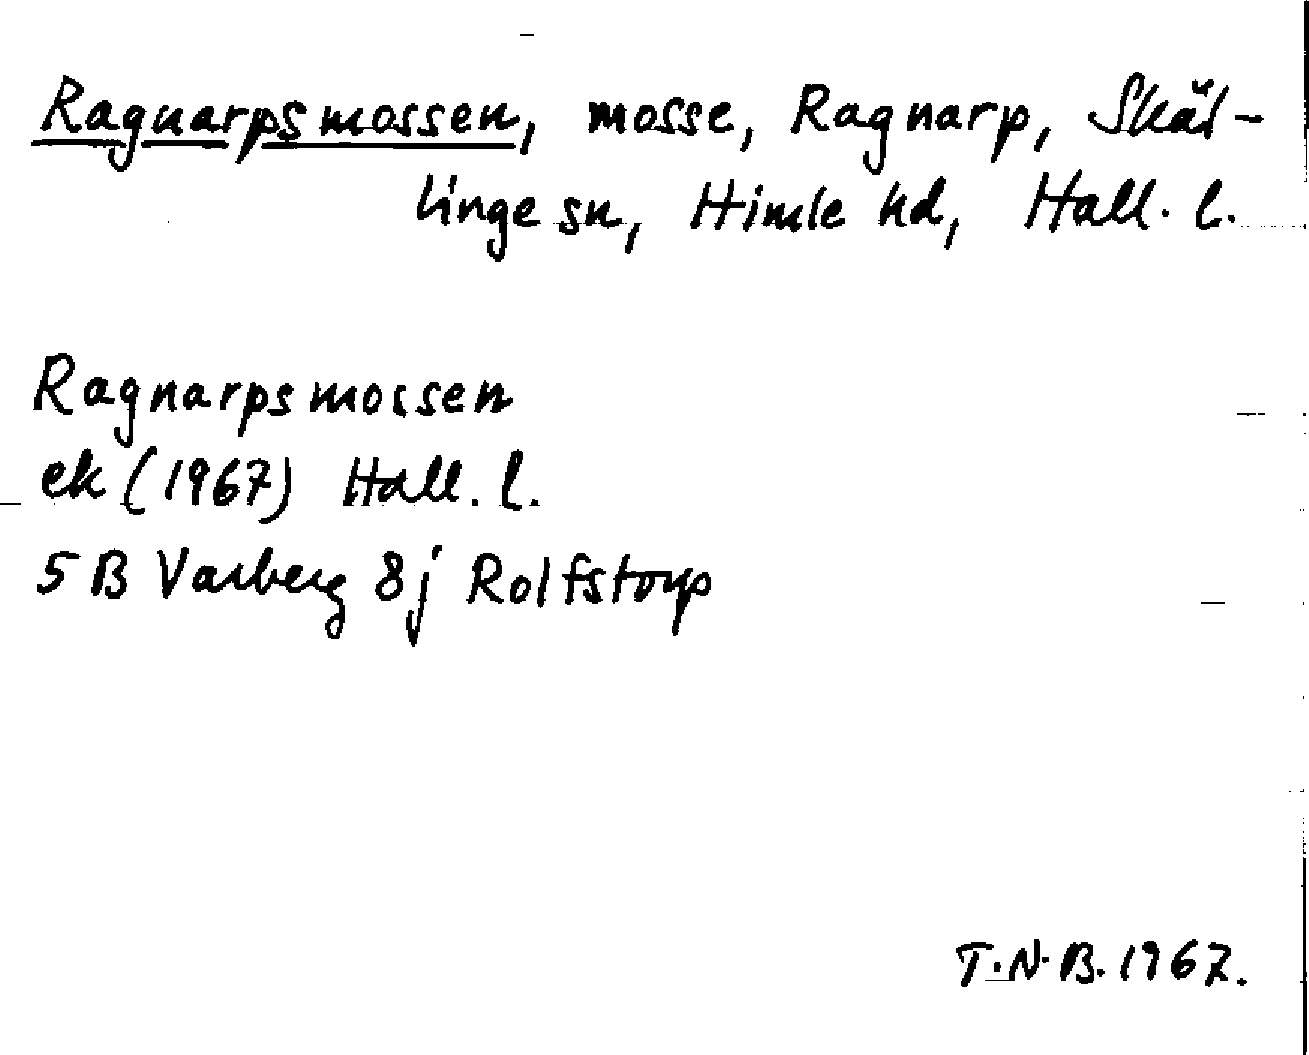 Ragnarpsmossen, mosse, Ragnarp, Skäl-
linge sn, Himle hd, Hall. l.
Ragnarpsmossen
ek (1967) Hall. l.
5B Varberg 8j Rolfstorp
T.N.B. 1967.